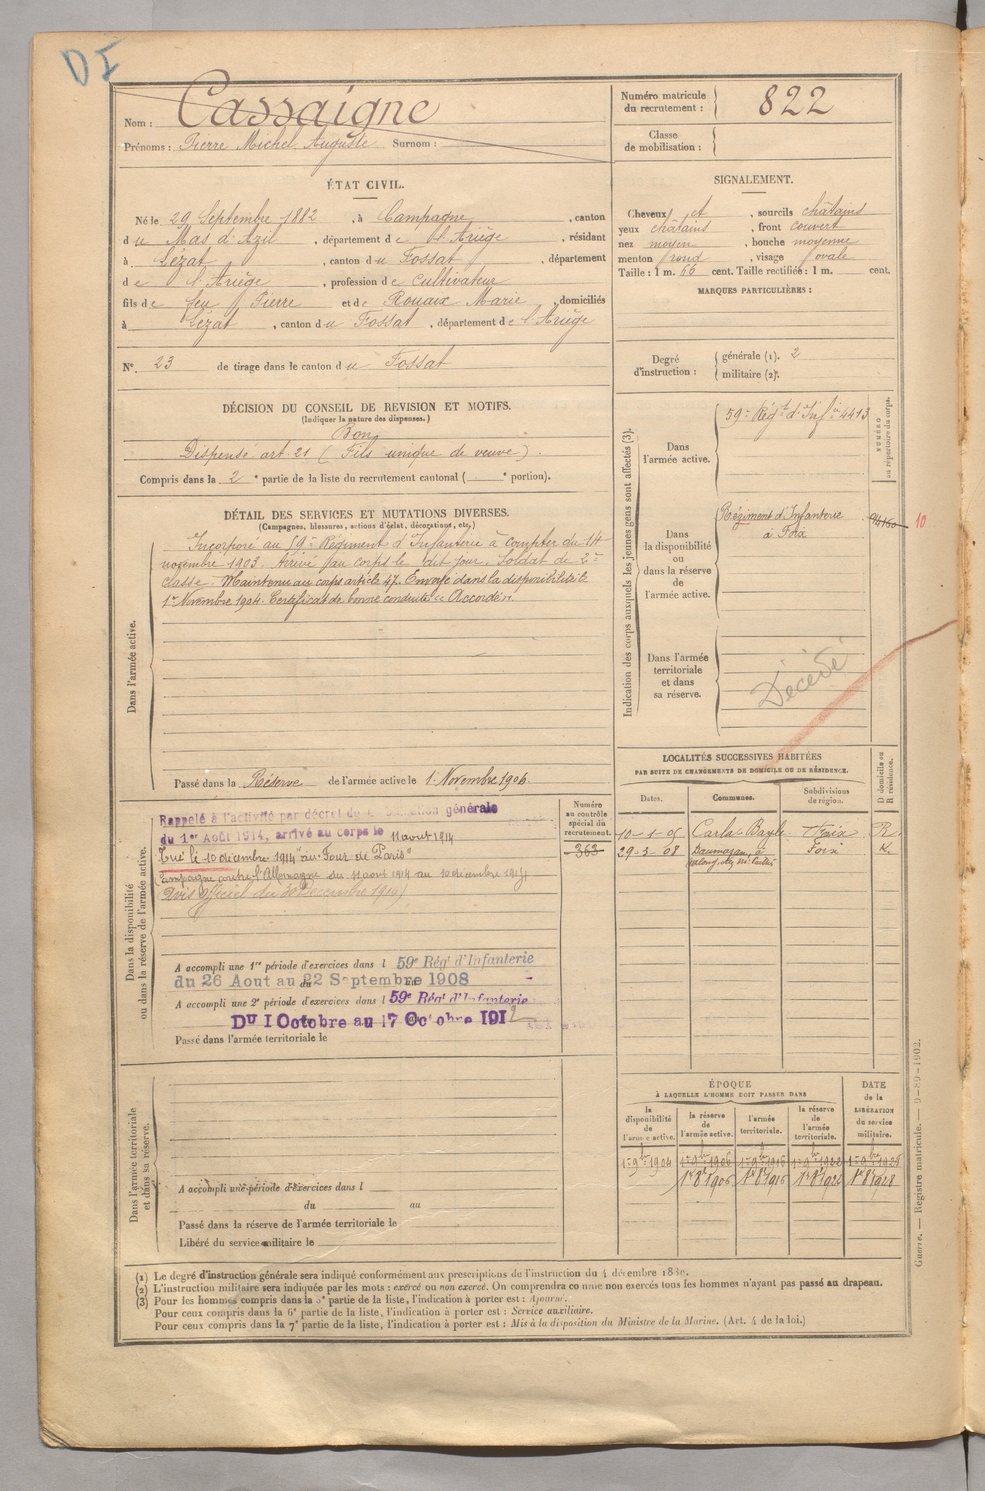 DI
Nom : Cassaigne
Prénoms : Pierre Michel Auguste Surnom :
Numéro matricule du recrutement : 822
Classe de mobilisation :
ÉTAT CIVIL.
Né le 29 Septembre 1882, à Campagne, canton
du Mas d'Azil, département de l'Ariège, résidant
à Lézat, canton du Fossat, département
de l'Ariège, profession de cultivateur
fils de feu Pierre et de Rouaix Marie, domiciliés
à Lézat, canton du Fossat, département de l'Ariège
N° 23 de tirage dans le canton du Fossat
SIGNALEMENT.
Cheveux et, sourcils châtains
yeux châtains, front couvert
nez moyen, bouche moyenne
menton rond, visage ovale
Taille : 1 m. 66 cent. Taille rectifiée : 1 m. cent.
MARQUES PARTICULIÈRES :
Degré d'instruction : générale (1). 2
militaire (2).
DÉCISION DU CONSEIL DE REVISION ET MOTIFS.
(Indiquer la nature des dispenses.)
Bon
Dispensé art. 21 (Fils unique de veuve).
Compris dans la 2e partie de la liste du recrutement cantonal ( e portion).
DÉTAIL DES SERVICES ET MUTATIONS DIVERSES.
(Campagnes, blessures, actions d'éclat, décorations, etc.)
Dans l'armée active.
Incorporé au 59e Régiment d'Infanterie à compter du 14
novembre 1903. Arrivé au corps le dit jour. Soldat de 2e
classe. Maintenu au corps article 47. Envoyé dans la disponibilité le
1er Novembre 1904. Certificat de bonne conduite « Accordé ».
Passé dans la Réserve de l'armée active le 1 Novembre 1906
Indication des corps auxquels les jeunes gens sont affectés (3).
NUMÉRO au répertoire du corps.
Dans l'armée active.
59e Régt d'Infie 4413
Dans la disponibilité ou dans la réserve de l'armée active.
Régiment d'Infanterie
à Foix
10
Dans l'armée territoriale et dans sa réserve.
Décédé
Dans la disponibilité ou dans la réserve de l'armée active.
Rappelé à l'activité par décret de mobilisation générale
du 1er Août 1914, arrivé au corps le 11 août 1914
Tué le 10 décembre 1914 "au Four de Paris"
Campagne contre l'Allemagne du 11 août 1914 au 10 décembre 1914
(Avis officiel du 30 Décembre 1914)
Numéro au contrôle spécial du recrutement.
363
A accompli une 1re période d'exercices dans l 59e Rég' d'Infanterie
du 26 Aout au 22 Septembre 1908
A accompli une 2e période d'exercices dans l 59e Rég' d'Infanterie
DU 1 Octobre au 17 Octobre 1912
Passé dans l'armée territoriale le
LOCALITÉS SUCCESSIVES HABITÉES
PAR SUITE DE CHANGEMENTS DE DOMICILE OU DE RÉSIDENCE.
Dates. Communes. Subdivisions de région. D domicile ou R résidence.
10-1-05 Carla-Bayle Foix R
29-3-08 Daumazan, Foix R.
Dans l'armée territoriale et dans sa réserve.
A accompli une période d'exercices dans l
du au
Passé dans la réserve de l'armée territoriale le
Libéré du service militaire le
ÉPOQUE
À LAQUELLE L'HOMME DOIT PASSER DANS
la disponibilité de l'armée active.
la réserve de l'armée active.
l'armée territoriale.
la réserve de l'armée territoriale.
DATE de la LIBÉRATION du service militaire.
1er 9bre 1904 1er 9bre 1906 1er 9bre 1916 1er 9bre 1922 1er 9bre 1928
1er 8bre 1906 1er 8bre 1916 1er 8bre 1922 1er 8bre 1928
Guerre. — Registre matricule. — 9-89-1902.
(1) Le degré d'instruction générale sera indiqué conformément aux prescriptions de l'instruction du 4 décembre 1889.
(2) L'instruction militaire sera indiquée par les mots : exercé ou non exercé. On comprendra comme non exercés tous les hommes n'ayant pas passé au drapeau.
(3) Pour les hommes compris dans la 5e partie de la liste, l'indication à porter est : Ajourné.
Pour ceux compris dans la 6e partie de la liste, l'indication à porter est : Service auxiliaire.
Pour ceux compris dans la 7e partie de la liste, l'indication à porter est : Mis à la disposition du Ministre de la Marine. (Art. 4 de la loi.)